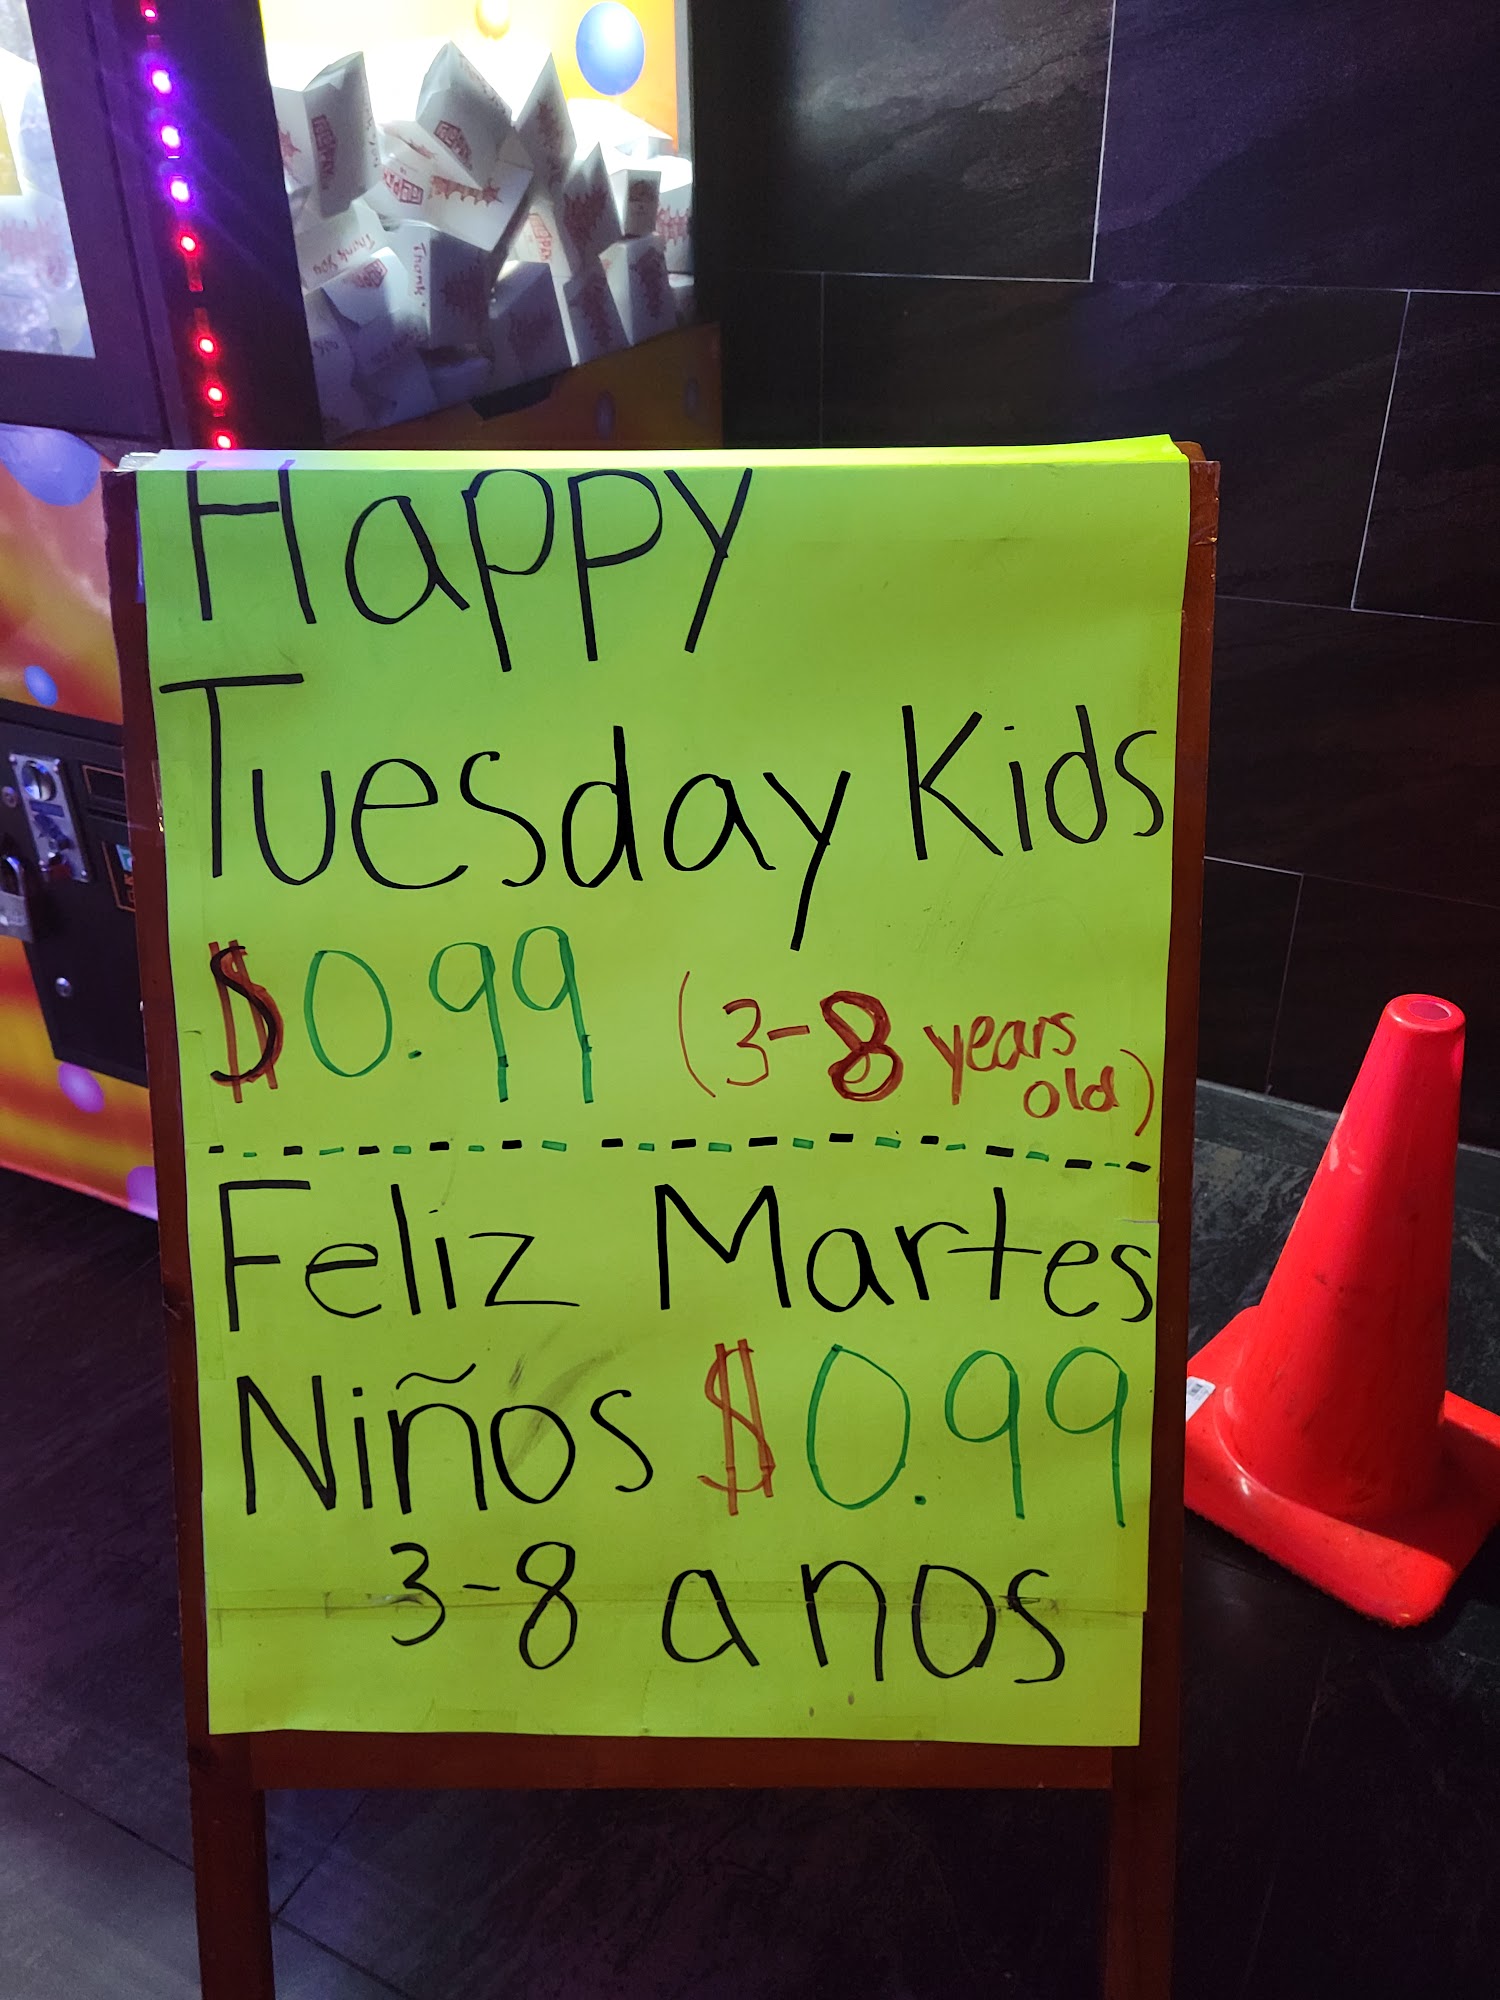 Thank you
Thank
Happy
Tuesday Kids
$0.99 (3-8 years
old)
Feliz Martes
Niños $0.99
3-8 anos